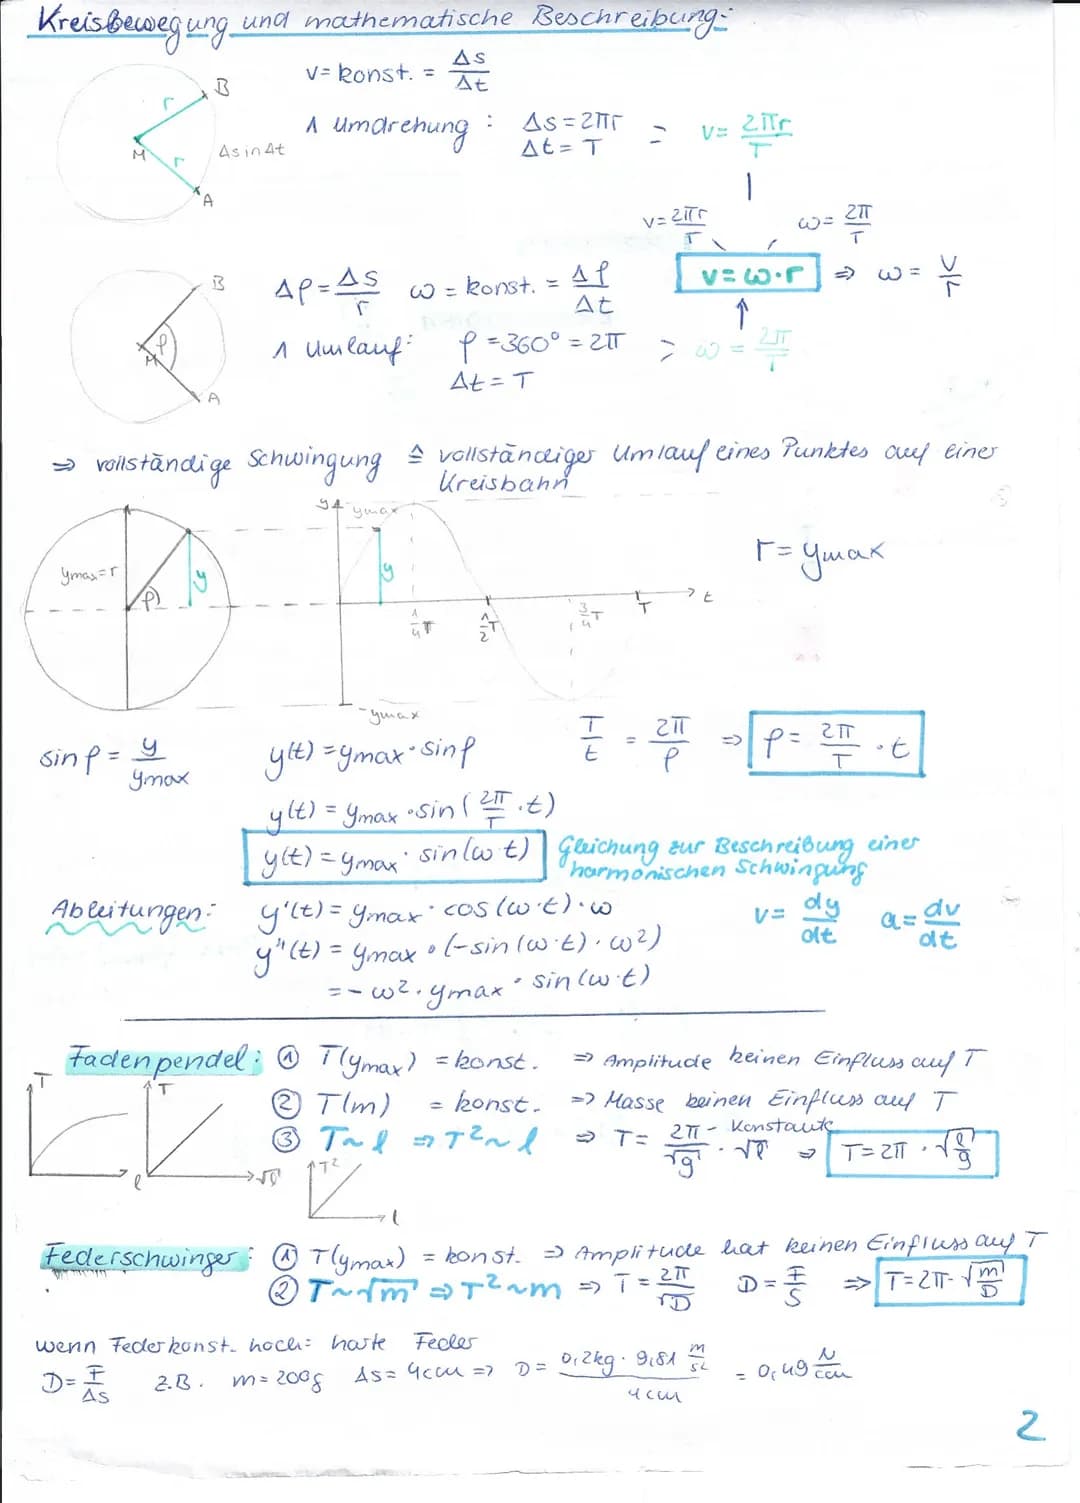 Kreisbewegung und mathematische Beschreibung:
v = konst. = Δs/Δt
1 Umdrehung : Δs = 2πr
Δt = T
= v = 2πr/T
B
r
M
r
Δs in Δt
A
v = 2πr/T
ω = 2π/T
v = ω·r ⇒ ω = v/r
B
Δφ = Δs/r ω = konst. = Δφ/Δt
1 Umlauf: φ = 360° = 2π > ω = 2π/T
Δt = T
φ
M
A
⇒ vollständige Schwingung ≙ vollständiger Umlauf eines Punktes auf einer
Kreisbahn
y
ymax
ymax = r
φ
y
y
1/4 T
1/2 T
3/4 T
T
t
-ymax
r = ymax
sin φ = y/ymax
y(t) = ymax · sin φ
T/t = 2π/φ ⇒ φ = 2π/T · t
y(t) = ymax · sin (2π/T · t)
y(t) = ymax · sin (ω t) Gleichung zur Beschreibung einer
harmonischen Schwingung
Ableitungen: y'(t) = ymax · cos (ω·t) · ω
v = dy/dt a = dv/dt
y''(t) = ymax · (-sin (ω·t) · ω²)
= - ω² · ymax · sin (ω·t)
Fadenpendel: ① T(ymax) = konst. ⇒ Amplitude keinen Einfluss auf T
② T(m) = konst. ⇒ Masse keinen Einfluss auf T
③ T ~ l ⇒ T² ~ l ⇒ T = 2π/√g · √l ⇒ T = 2π · √(l/g)
- Konstante
T
l
T
√l
T²
l
Federschwinger: ① T(ymax) = konst. ⇒ Amplitude hat keinen Einfluss auf T
② T ~ √m ⇒ T² ~ m ⇒ T = 2π/√D D = F/S ⇒ T = 2π · √(m/D)
wenn Federkonst. hoch: harte Feder
D = F/Δs z.B. m = 200g Δs = 4cm ⇒ D = 0,2kg · 9,81 m/s² / 4cm = 0,49 N/cm
2